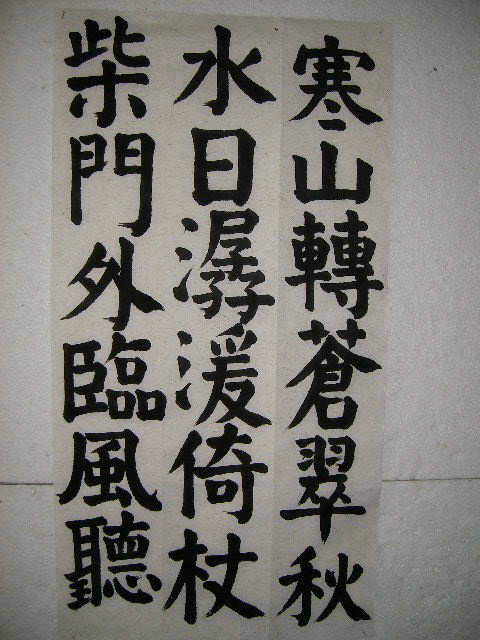 寒山轉蒼翠秋
水日潺湲倚杖
柴門外臨風聽